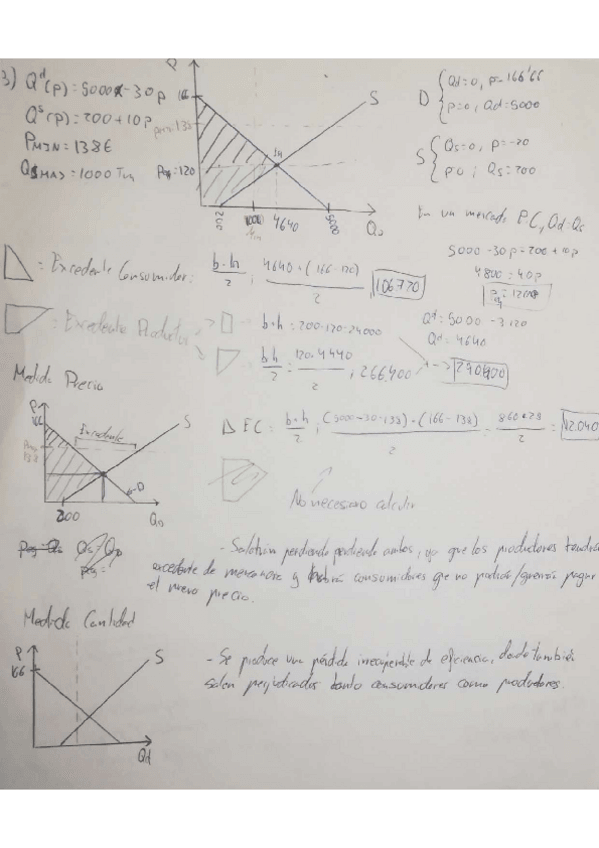 3) Qᵈ(p) = 5000 - 30p
Qˢ(p) = 200 + 10p
PMIN = 138€
QSMAX = 1000 Tm
P
166
Pmin = 138
Peq = 120
S
200
1000
4640
5000
Qd
D { Qd = 0, p = 166'66
p = 0, Qd = 5000
S { Qs = 0, p = -20
p = 0; Qs = 200
En un mercado PC, Qd = Qs
5000 - 30p = 200 + 10p
4800 = 40p
Qd = 5000 - 3·120
Qd = 4640
= Excedente Consumidor: b·h/2 ; 4640·(166-120)/2 106720
= Excedente Productor b·h = 200·120 = 24000
b·h/2 = 120·4440/2 = 266.400 → 290400
Medida Precio
P
166
Pmin 138
Excedente
S
D
200
Qd
Δ EC: b·h/2 ; (5000-30·138)·(166-138)/2 = 860·28/2 = 12.040
No necesario calcular
Qs = Qd
- Saldrían perdiendo ambos, ya que los productores tendrían
excedente de mercancía y habría consumidores que no podrían/querrán pagar
el nuevo precio.
Medida Cantidad
P
166
S
Qd
- Se produce una pérdida irrecuperable de eficiencia, donde también
salen perjudicados tanto consumidores como productores.